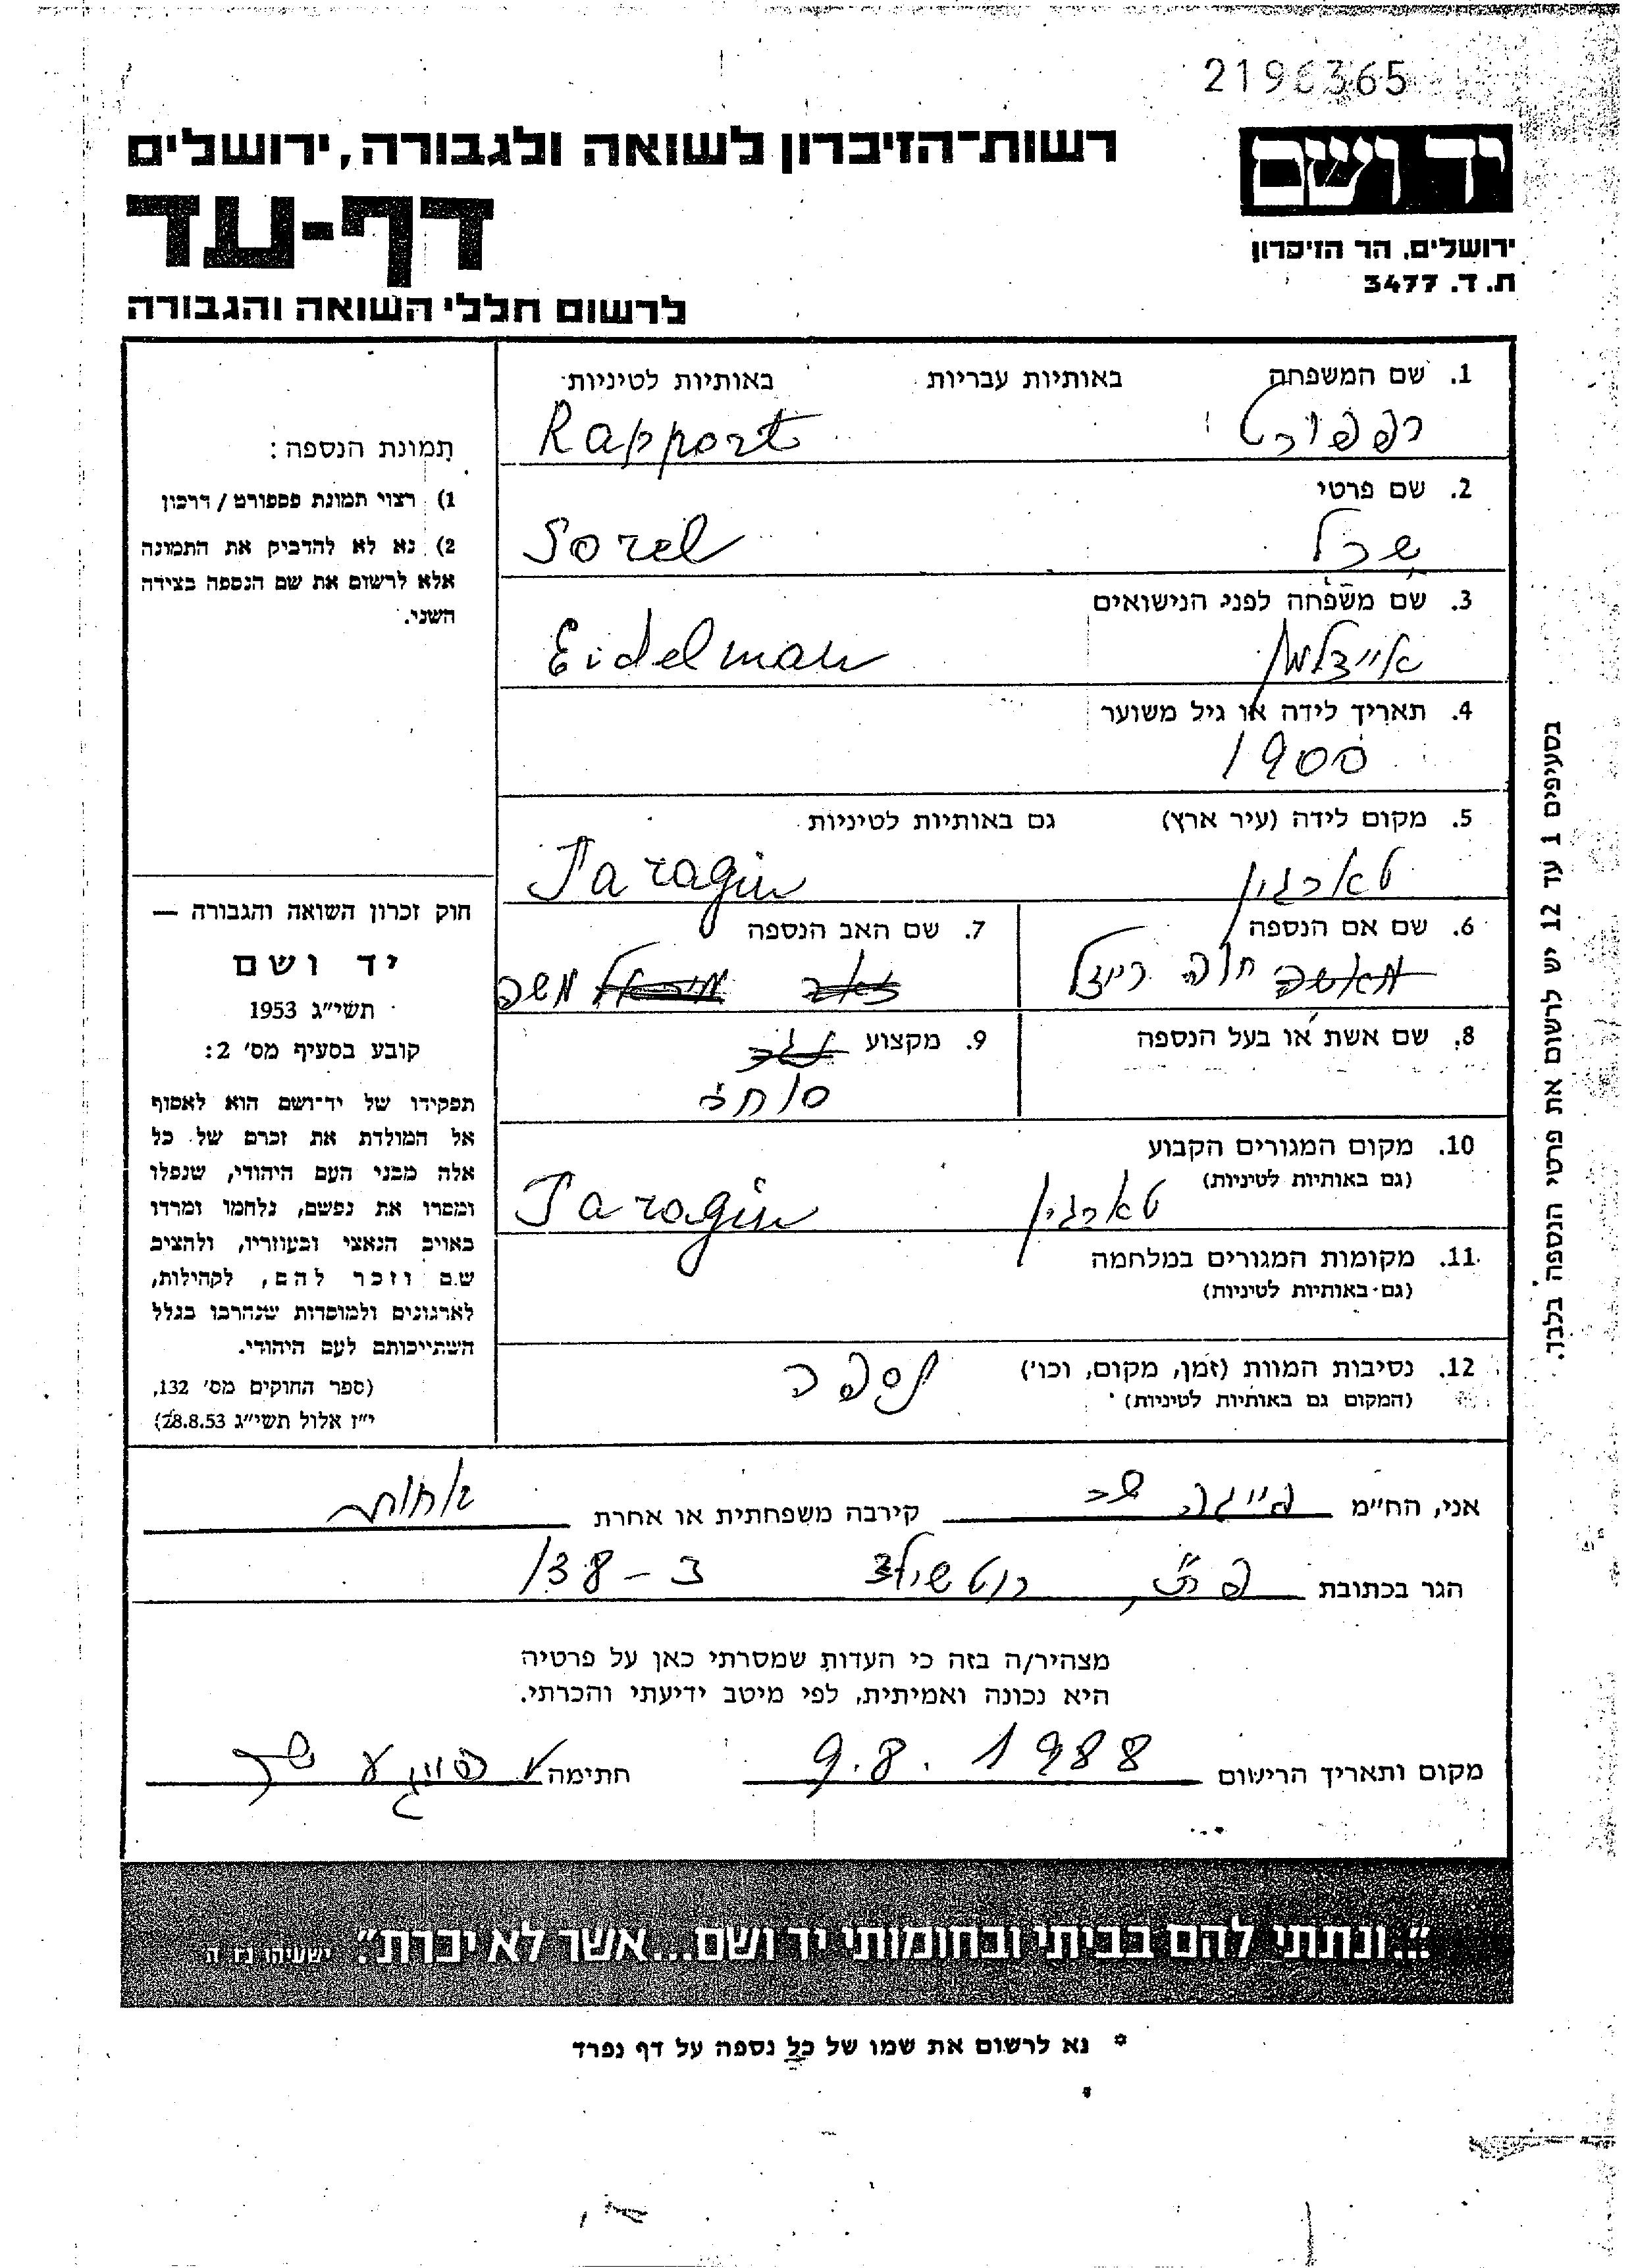 2196365
יד ושם
רשות־הזיכרון לשואה ולגבורה, ירושלים
דף-עד
ירושלים, הר הזיכרון
ת. ד. 3477
לרשום חללי השואה והגבורה
1. שם המשפחה באותיות עבריות באותיות לטיניות
רפפורט Rapport
2. שם פרטי
שרל Sorel
3. שם משפחה לפני הנישואים
איידלמן Eidelman
4. תאריך לידה או גיל משוער
1900
5. מקום לידה (עיר ארץ) גם באותיות לטיניות
טארגין Taragin
6. שם אם הנספה
חוה רייזל
7. שם האב הנספה
משה
8. שם אשת או בעל הנספה
9. מקצוע
סוחר
10. מקום המגורים הקבוע
(גם באותיות לטיניות)
טארגין Taragin
11. מקומות המגורים במלחמה
(גם באותיות לטיניות)
12. נסיבות המוות (זמן, מקום, וכו')
(המקום גם באותיות לטיניות)
נספה
תמונת הנספה:
1) רצוי תמונת פספורט / דרכון
2) נא לא להדביק את התמונה
אלא לרשום את שם הנספה בצידה
השני.
חוק זכרון השואה והגבורה —
יד ושם
תשי״ג 1953
קובע בסעיף מס' 2:
תפקידו של יד־ושם הוא לאסוף
אל המולדת את זכרם של כל
אלה מבני העם היהודי, שנפלו
ומסרו את נפשם, נלחמו ומרדו
באויב הנאצי ובעוזריו, ולהציב
שם וזכר להם, לקהילות,
לארגונים ולמוסדות שנהרבו בגלל
השתייכותם לעם היהודי.
(ספר החוקים מס' 132,
י״ז אלול תשי״ג 28.8.53)
בסעיפים 1 עד 12 יש לרשום את פרטי הנספה בלבד.
אני, הח״מ פייגה שר קירבה משפחתית או אחרת אחות
הגר בכתובת פ״ת, רוטשילד 138 - ב
מצהיר/ה בזה כי העדות שמסרתי כאן על פרטיה
היא נכונה ואמיתית, לפי מיטב ידיעתי והכרתי.
מקום ותאריך הרישום 9.8.1988 חתימה פייגע שר
״...ונתתי להם בביתי ובחומותי יד ושם...אשר לא יכרת״. ישעיהו נו ה
* נא לרשום את שמו של כל נספה על דף נפרד